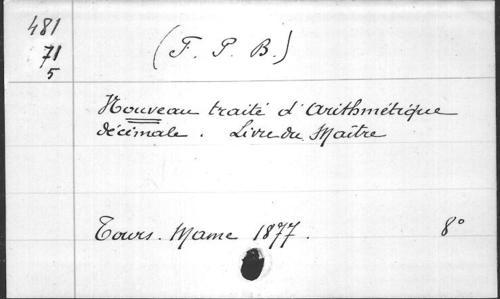 481
71
5
(F. P. B.)
Nouveau traité d'Arithmétique
décimale. Livre du Maître
Tours. Mame 1877. 8°